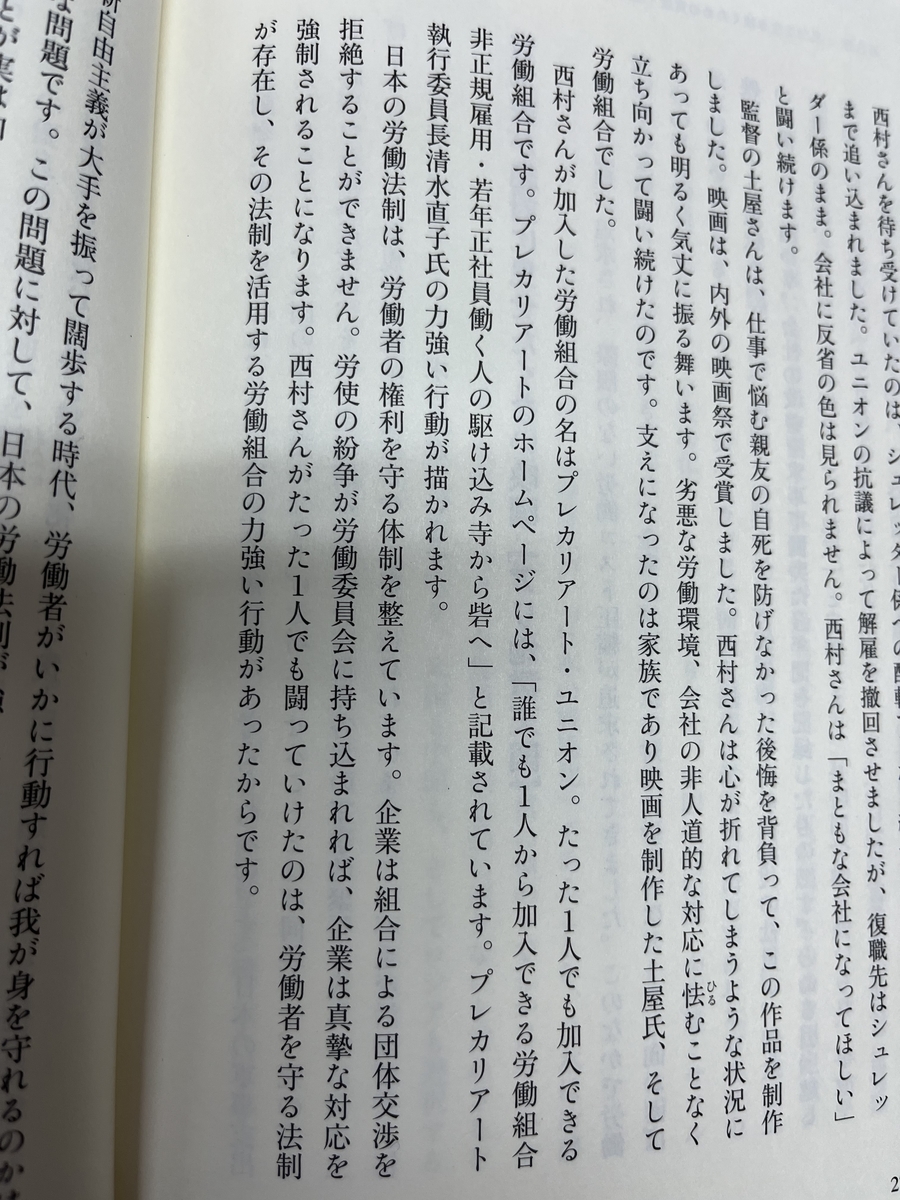 西村さんを待ち受けていたのは、シュレッダー係への配転
まで追い込まれました。ユニオンの抗議によって解雇を撤回させましたが、復職先はシュレッ
ダー係のまま。会社に反省の色は見られません。西村さんは「まともな会社になってほしい」
と闘い続けます。
監督の土屋さんは、仕事で悩む親友の自死を防げなかった後悔を背負って、この作品を制作
しました。映画は、内外の映画祭で受賞しました。西村さんは心が折れてしまうような状況に
あっても明るく気丈に振る舞います。劣悪な労働環境、会社の非人道的な対応に怯むことなく
ひる
立ち向かって闘い続けたのです。支えになったのは家族であり映画を制作した土屋氏、そして
労働組合でした。
西村さんが加入した労働組合の名はプレカリアート・ユニオン。たった1人でも加入できる
労働組合です。プレカリアートのホームページには、「誰でも1人から加入できる労働組合
非正規雇用・若年正社員働く人の駆け込み寺から砦へ」と記載されています。プレカリアート
執行委員長清水直子氏の力強い行動が描かれます。
日本の労働法制は、労働者の権利を守る体制を整えています。企業は組合による団体交渉を
拒絶することができません。労使の紛争が労働委員会に持ち込まれれば、企業は真摯な対応を
強制されることになります。西村さんがたった1人でも闘っていけたのは、労働者を守る法制
が存在し、その法制を活用する労働組合の力強い行動があったからです。
自由主義が大手を振って闊歩する時代、労働者がいかに行動すれば我が身を守れるのか
な問題です。この問題に対して、日本の労働法制が